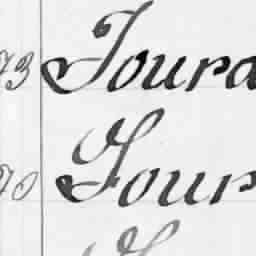 73 Joura
70 Jour